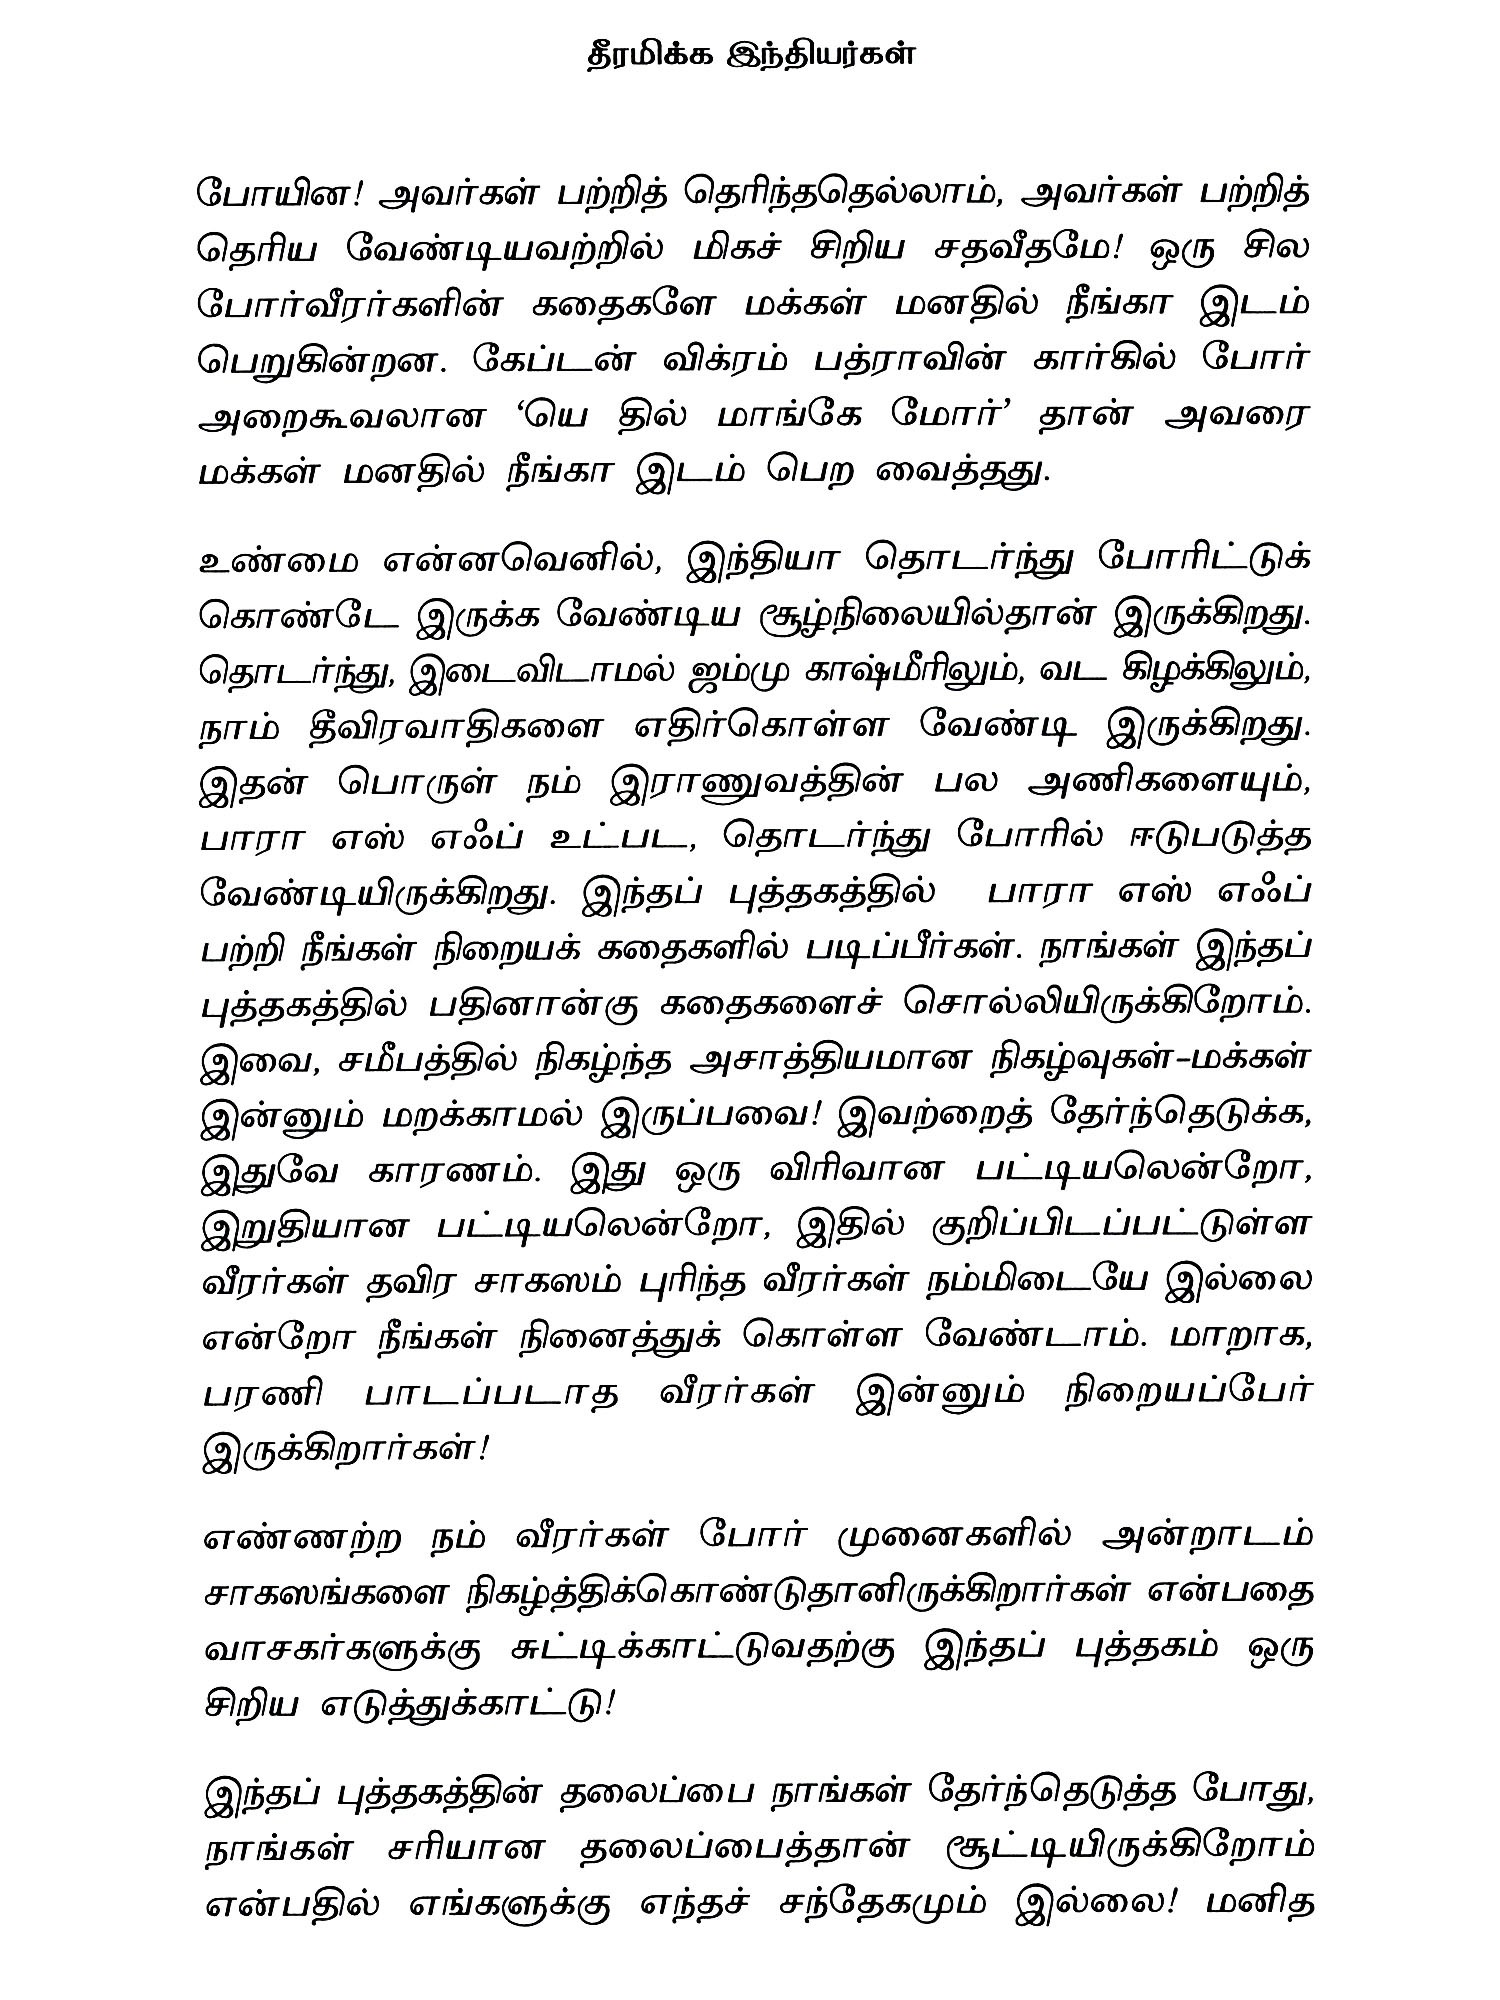 தீரமிக்க இந்தியர்கள்
போயின! அவர்கள் பற்றித் தெரிந்ததெல்லாம், அவர்கள் பற்றித்
தெரிய வேண்டியவற்றில் மிகச் சிறிய சதவீதமே! ஒரு சில
போர்வீரர்களின் கதைகளே மக்கள் மனதில் நீங்கா இடம்
பெறுகின்றன. கேப்டன் விக்ரம் பத்ராவின் கார்கில் போர்
அறைகூவலான ‘யெ தில் மாங்கே மோர்’ தான் அவரை
மக்கள் மனதில் நீங்கா இடம் பெற வைத்தது.
உண்மை என்னவெனில், இந்தியா தொடர்ந்து போரிட்டுக்
கொண்டே இருக்க வேண்டிய சூழ்நிலையில்தான் இருக்கிறது.
தொடர்ந்து, இடைவிடாமல் ஜம்மு காஷ்மீரிலும், வட கிழக்கிலும்,
நாம் தீவிரவாதிகளை எதிர்கொள்ள வேண்டி இருக்கிறது.
இதன் பொருள் நம் இராணுவத்தின் பல அணிகளையும்,
பாரா எஸ் எஃப் உட்பட, தொடர்ந்து போரில் ஈடுபடுத்த
வேண்டியிருக்கிறது. இந்தப் புத்தகத்தில் பாரா எஸ் எஃப்
பற்றி நீங்கள் நிறையக் கதைகளில் படிப்பீர்கள். நாங்கள் இந்தப்
புத்தகத்தில் பதினான்கு கதைகளைச் சொல்லியிருக்கிறோம்.
இவை, சமீபத்தில் நிகழ்ந்த அசாத்தியமான நிகழ்வுகள்-மக்கள்
இன்னும் மறக்காமல் இருப்பவை! இவற்றைத் தேர்ந்தெடுக்க,
இதுவே காரணம். இது ஒரு விரிவான பட்டியலென்றோ,
இறுதியான பட்டியலென்றோ, இதில் குறிப்பிடப்பட்டுள்ள
வீரர்கள் தவிர சாகஸம் புரிந்த வீரர்கள் நம்மிடையே இல்லை
என்றோ நீங்கள் நினைத்துக் கொள்ள வேண்டாம். மாறாக,
பரணி பாடப்படாத வீரர்கள் இன்னும் நிறையப்பேர்
இருக்கிறார்கள்!
எண்ணற்ற நம் வீரர்கள் போர் முனைகளில் அன்றாடம்
சாகஸங்களை நிகழ்த்திக்கொண்டுதானிருக்கிறார்கள் என்பதை
வாசகர்களுக்கு சுட்டிக்காட்டுவதற்கு இந்தப் புத்தகம் ஒரு
சிறிய எடுத்துக்காட்டு!
இந்தப் புத்தகத்தின் தலைப்பை நாங்கள் தேர்ந்தெடுத்த போது,
நாங்கள் சரியான தலைப்பைத்தான் சூட்டியிருக்கிறோம்
என்பதில் எங்களுக்கு எந்தச் சந்தேகமும் இல்லை! மனித